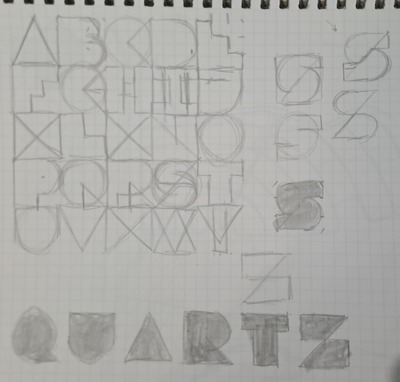 A B C D E
F G H I J
K L M N O
P Q R S T
U V W X Y
S S
S S
S
Z
QUARTZ